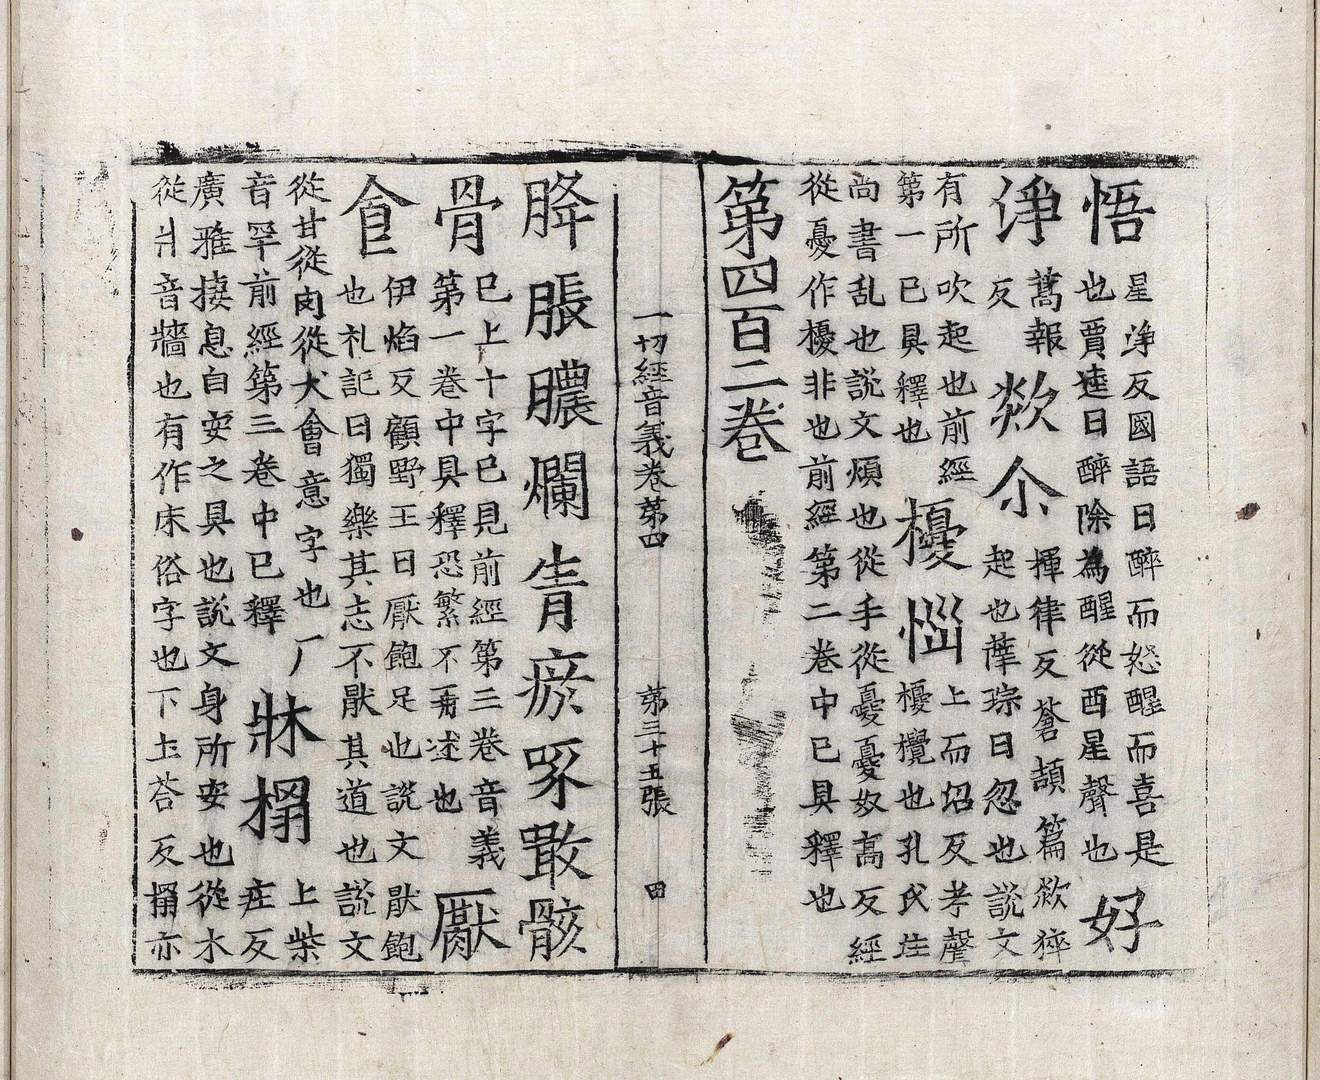 悟星淨反國語曰醉而怒醒而喜是也賈逵曰醉除為醒從酉星聲也好
淨蒿報反欻尒揮律反蒼頡篇欻猝起也薛琮曰忽也說文
有所吹起也前經第一已具釋也擾惱上而沼反考聲擾攪也孔氏注
尚書乱也說文煩也從手從憂憂奴髙反經從憂作擾非也前經第二卷中已具釋也
第四百二卷
一切經音義卷第四 第三十五張 田
胮脹膿爛青瘀啄噉骸
骨已上十字已見前經第三卷音義第一卷中具釋恐繁不再述也厭
食伊焰反顧野王曰厭飽足也說文猒飽也礼記曰獨樂其志不猒其道也說文
從甘從肉從犬會意字也厂音罕前經第三卷中已釋牀榻上柴壯反
廣雅捿息自安之具也說文身所安也從木從爿音牆也有作床俗字也下土荅反榻亦